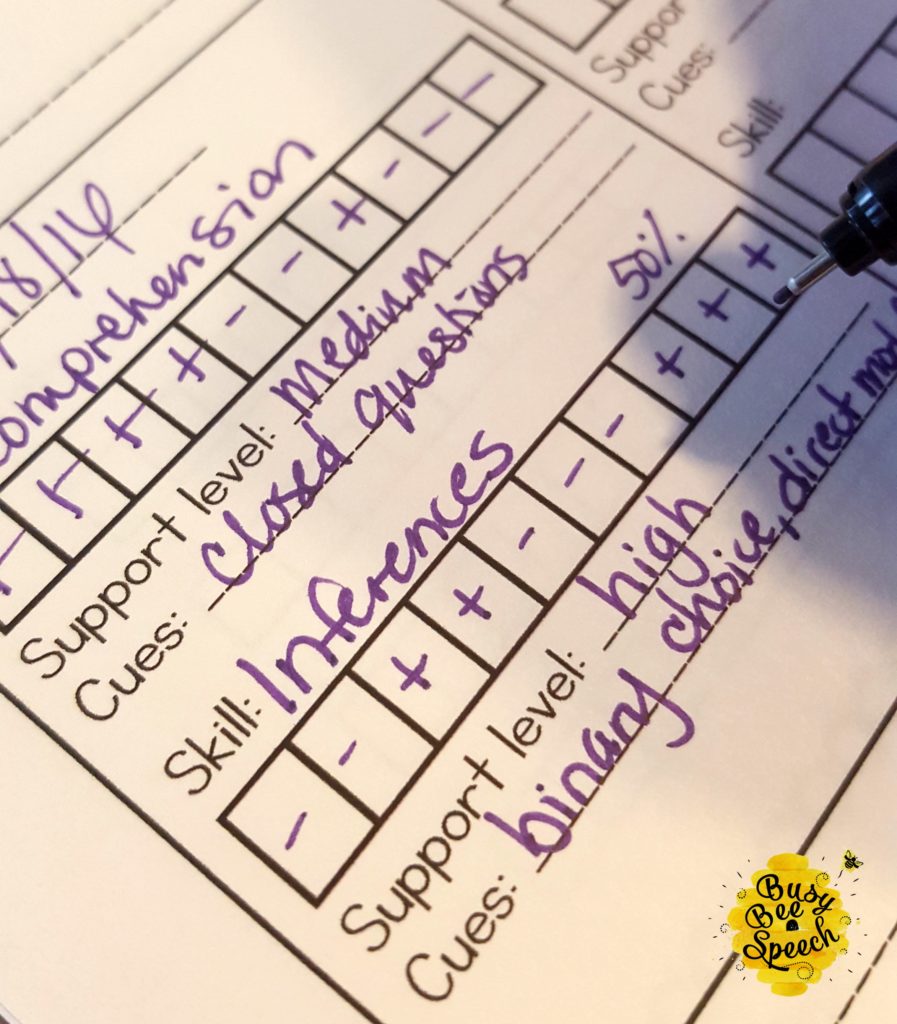 comprehension
+ + + + - - + - - -
Support level: medium
Cues: closed questions
Skill: Inferences
50%
- - + + - - - + + +
Support level: high
Cues: binary choice, direct mod
Suppor
Cues:
Skill:
Busy
Bee
Speech